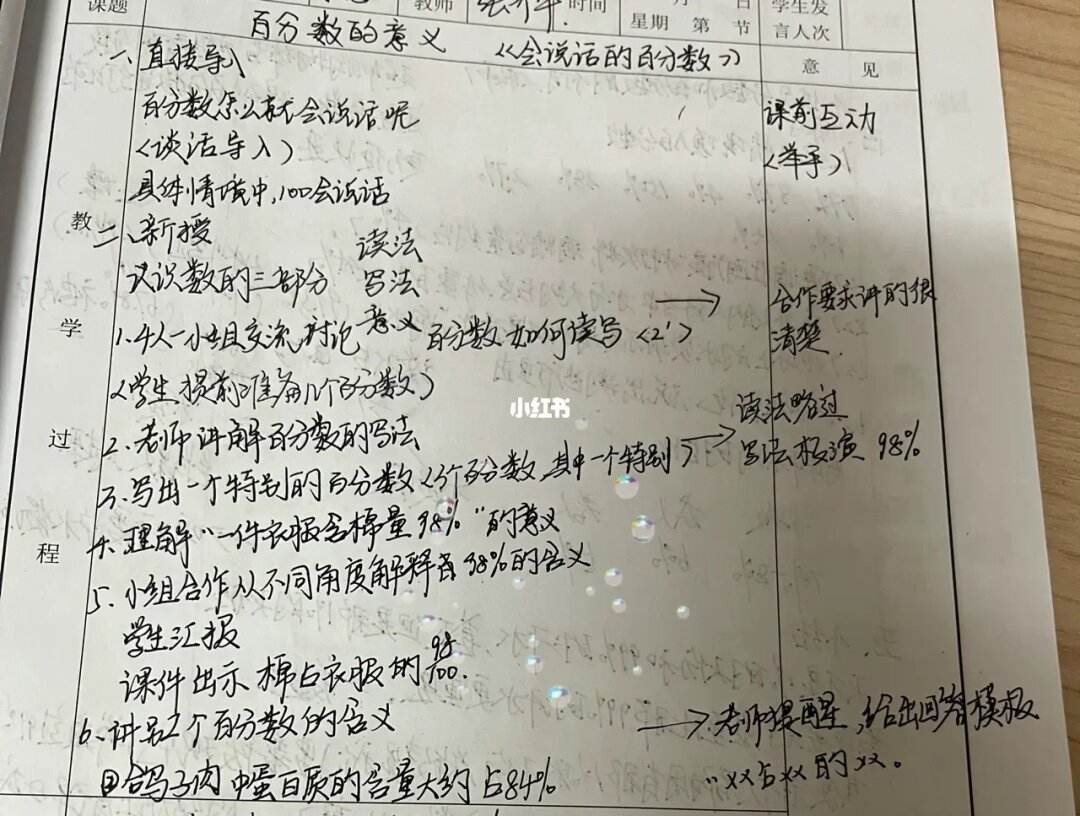 课题 教师 时间 月 日 学生发
星期 第 节 言人次
百分数的意义 《会说话的百分数》
意 见
一、直接导入
百分数怎么就会说话呢
课前互动
<谈话导入>
<举手>
具体情境中，100会说话
教
二、新授 读法
认识数的三部分 写法
意义
合作要求讲的很
学
1.4人一小组交流，讨论 百分数如何读写<2'> →
清楚
<学生提前准备几个百分数>
小红书
读法略过
过
2.老师讲解百分数的写法
→ 写法板演 98%
3.写出一个特别的百分数<3个百分数，其中一个特别>
4.理解"一件衣服含棉量98%"的意义
程
5.小组合作从不同角度解释 98%的含义
学生汇报
课件出示 棉占衣服的98/100.
6.讲另2个百分数的含义 → 老师提醒，给出回答模板
鸽子肉中蛋白质的含量大约占84%
"xx占xx的xx。